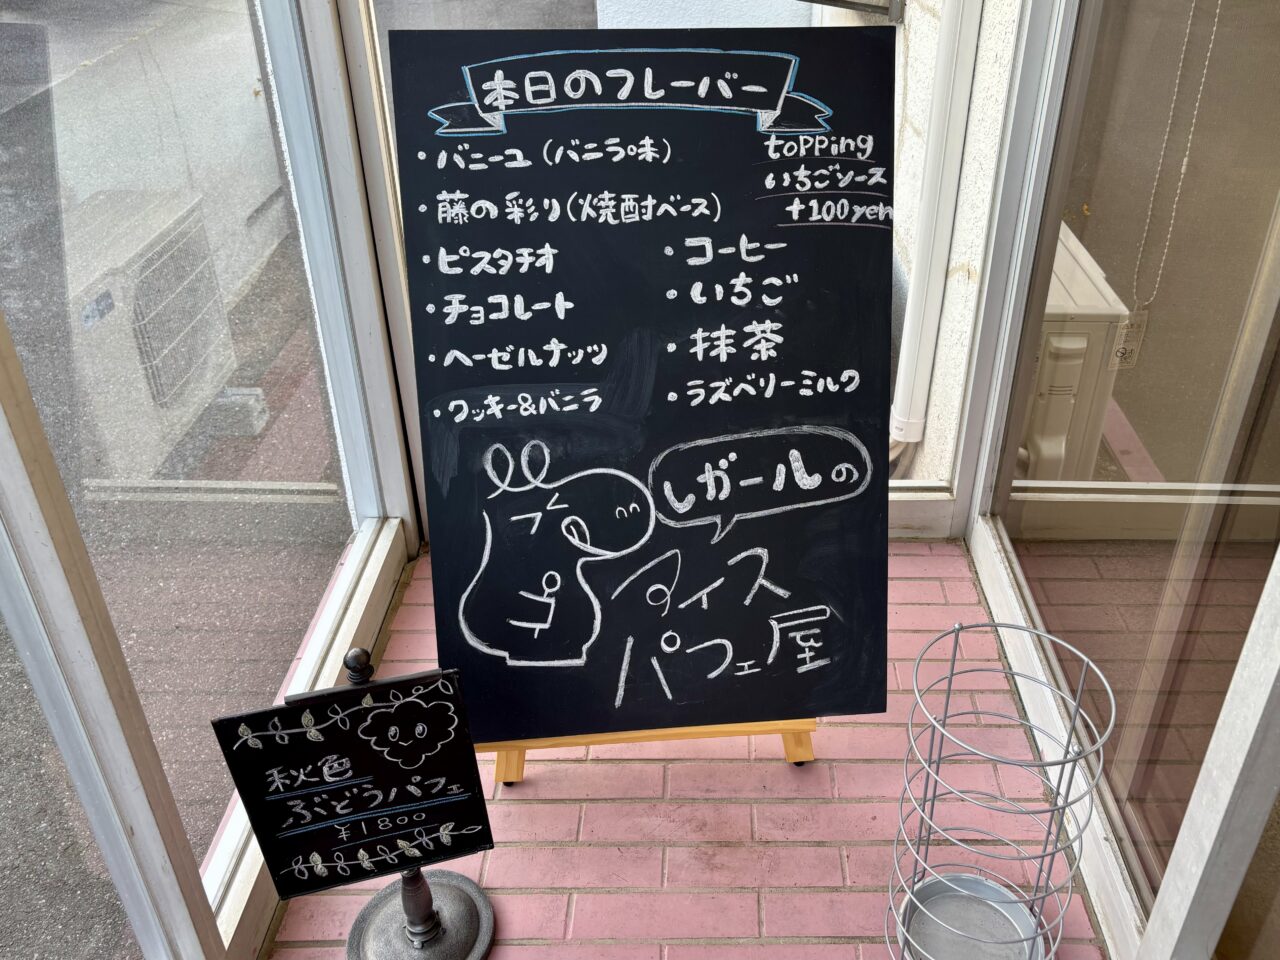 本日のフレーバー
・バニーユ（バニラ味）
topping
いちごソース
+100yen
・藤の彩り（焼酎ベース）
・ピスタチオ
・コーヒー
・チョコレート
・いちご
・ヘーゼルナッツ
・抹茶
・クッキー&バニラ
・ラズベリーミルク
レガールの
アイス
パフェ屋
秋色
ぶどうパフェ
¥1800